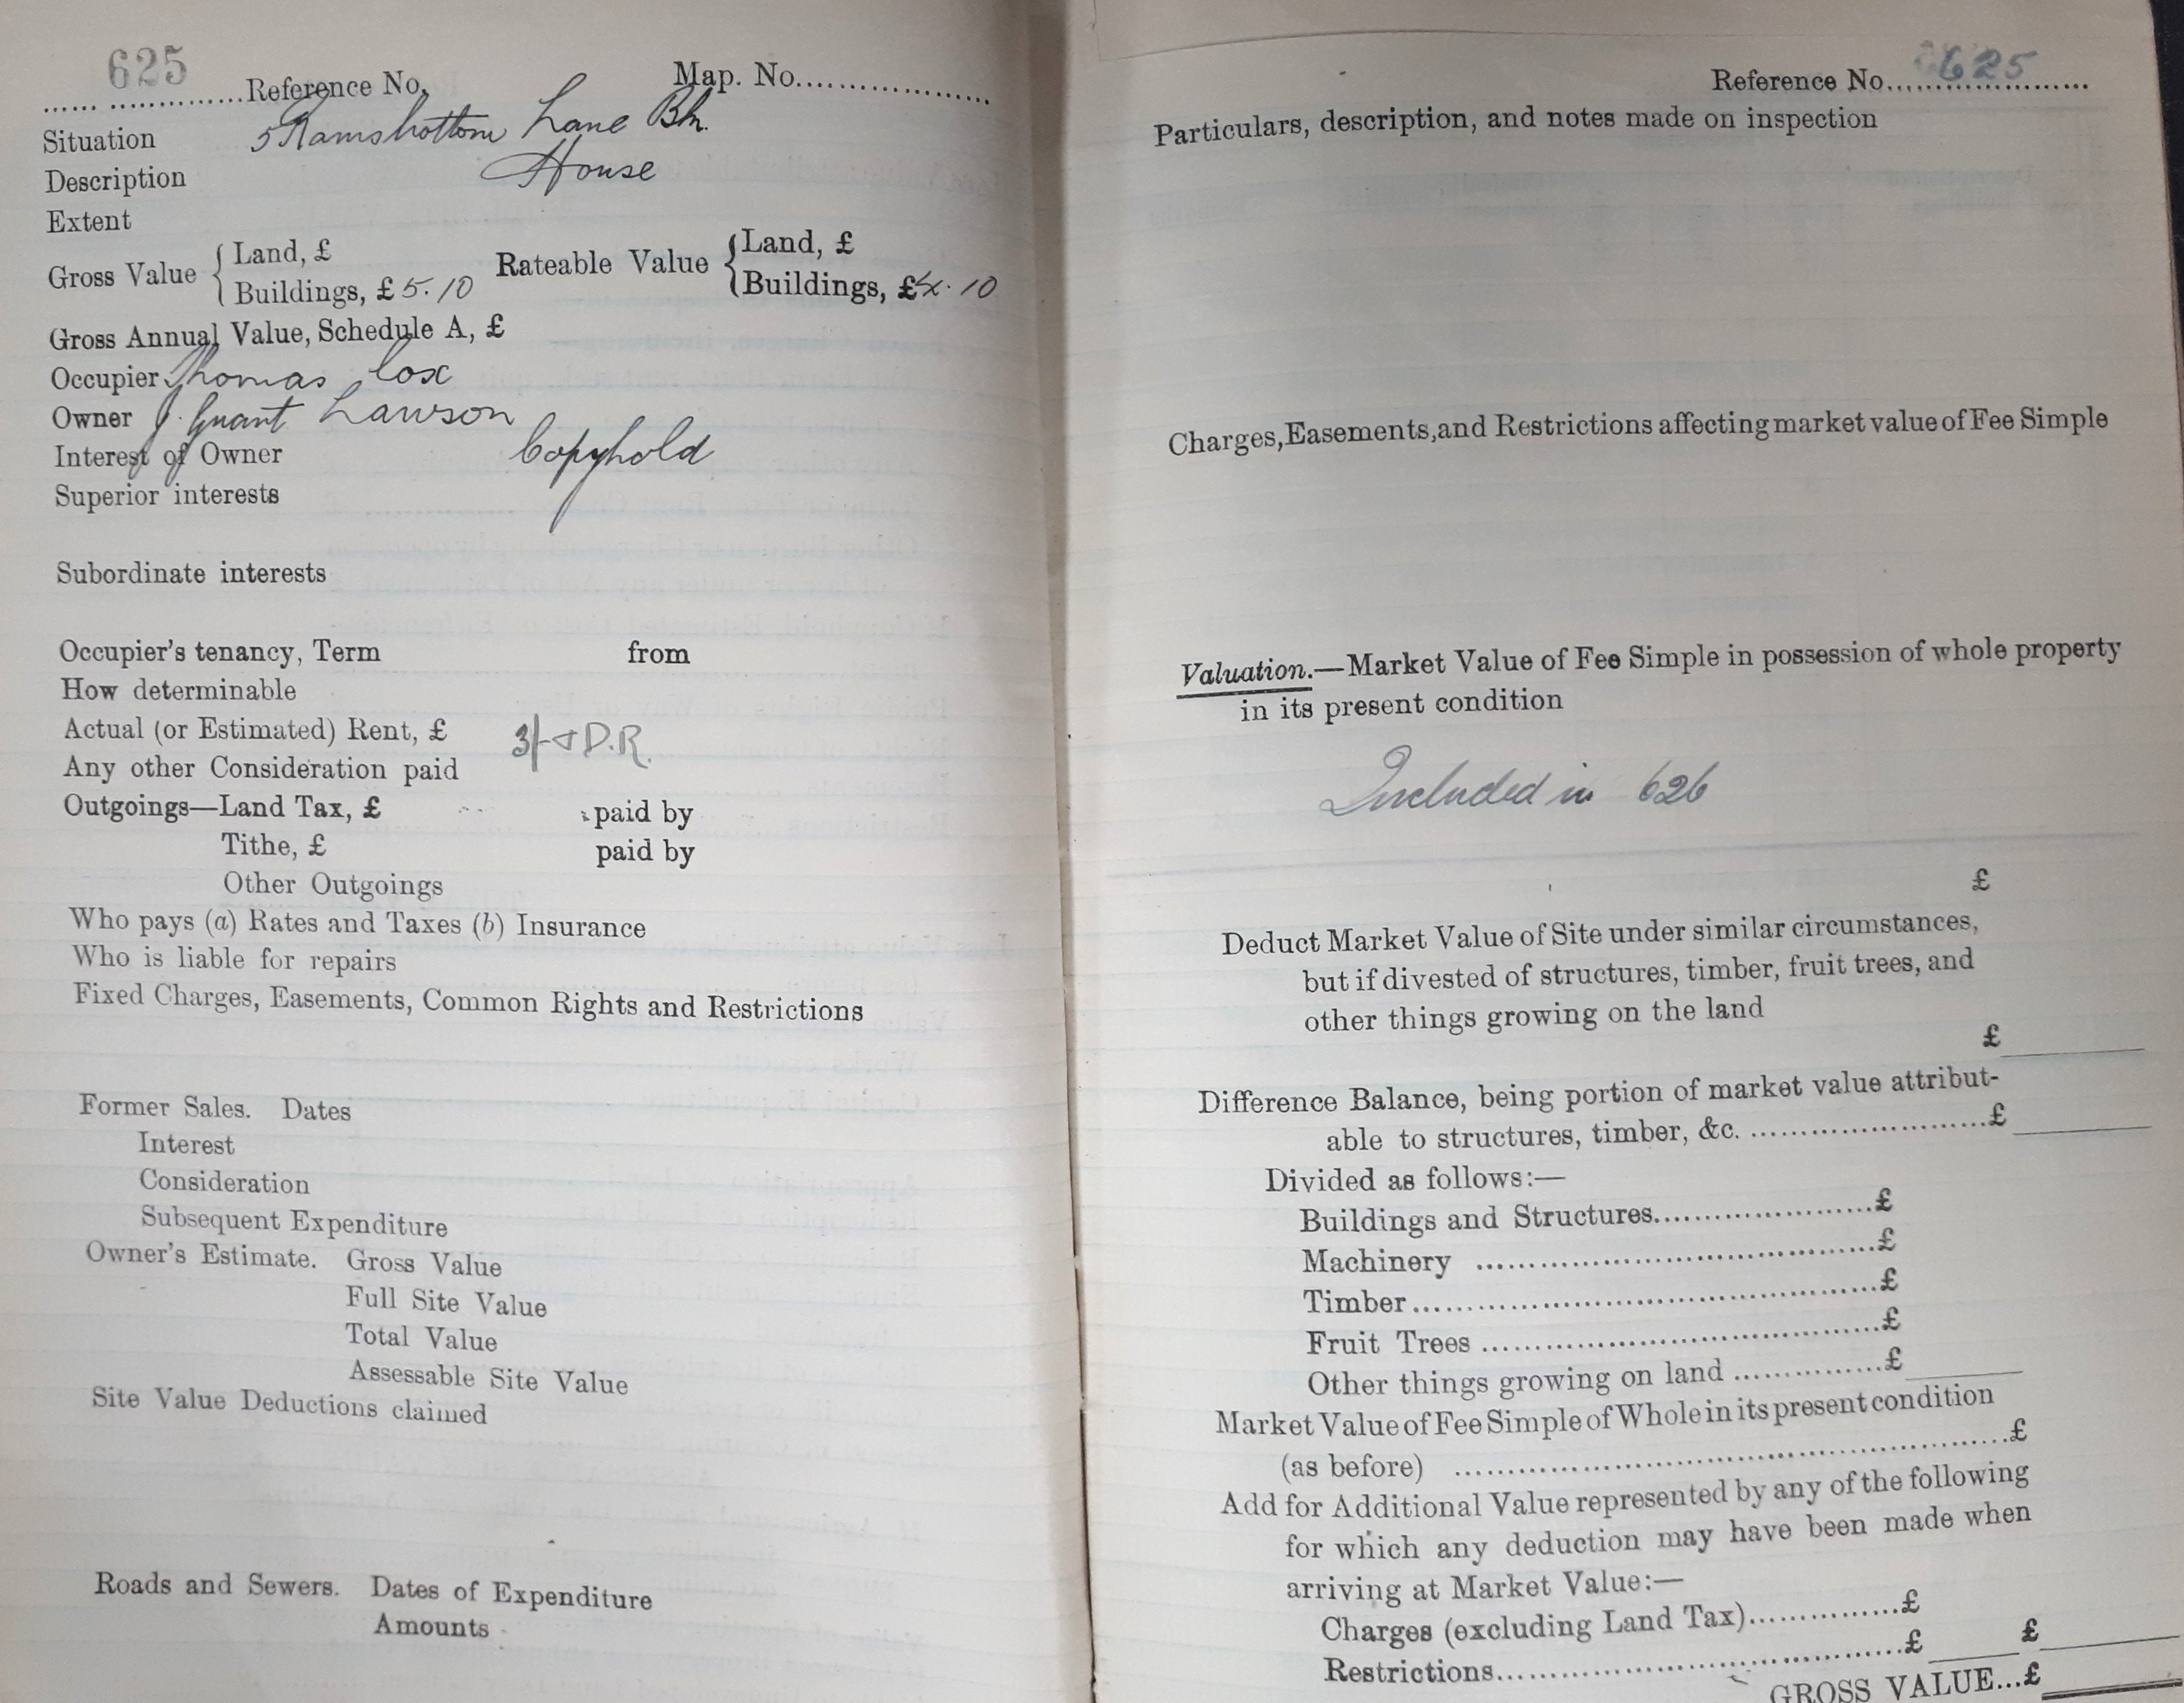 625
...... ..............Reference No. Map. No.....................
Situation 5 Ramsbottom Lane Bk.
Description House
Extent
Gross Value { Land, £ Rateable Value { Land, £
Buildings, £ 5.10 Buildings, £4.10
Gross Annual Value, Schedule A, £
Occupier Thomas Cox
Owner J. Grant Lawson
Interest of Owner Copyhold
Superior interests
Subordinate interests
Occupier's tenancy, Term from
How determinable
Actual (or Estimated) Rent, £ 3/- & D.R.
Any other Consideration paid
Outgoings—Land Tax, £ paid by
Tithe, £ paid by
Other Outgoings
Who pays (a) Rates and Taxes (b) Insurance
Who is liable for repairs
Fixed Charges, Easements, Common Rights and Restrictions
Former Sales. Dates
Interest
Consideration
Subsequent Expenditure
Owner's Estimate. Gross Value
Full Site Value
Total Value
Assessable Site Value
Site Value Deductions claimed
Roads and Sewers. Dates of Expenditure
Amounts
Reference No. 625
Particulars, description, and notes made on inspection
Charges, Easements, and Restrictions affecting market value of Fee Simple
Valuation.—Market Value of Fee Simple in possession of whole property
in its present condition
Included in 626
£
Deduct Market Value of Site under similar circumstances,
but if divested of structures, timber, fruit trees, and
other things growing on the land
£
Difference Balance, being portion of market value attribut-
able to structures, timber, &c. ........................£
Divided as follows:—
Buildings and Structures........................£
Machinery ........................................£
Timber..............................................£
Fruit Trees ........................................£
Other things growing on land ...............£
Market Value of Fee Simple of Whole in its present condition
(as before) ........................................................£
Add for Additional Value represented by any of the following
for which any deduction may have been made when
arriving at Market Value:—
Charges (excluding Land Tax)................£
Restrictions..........................................£ £
GROSS VALUE...£